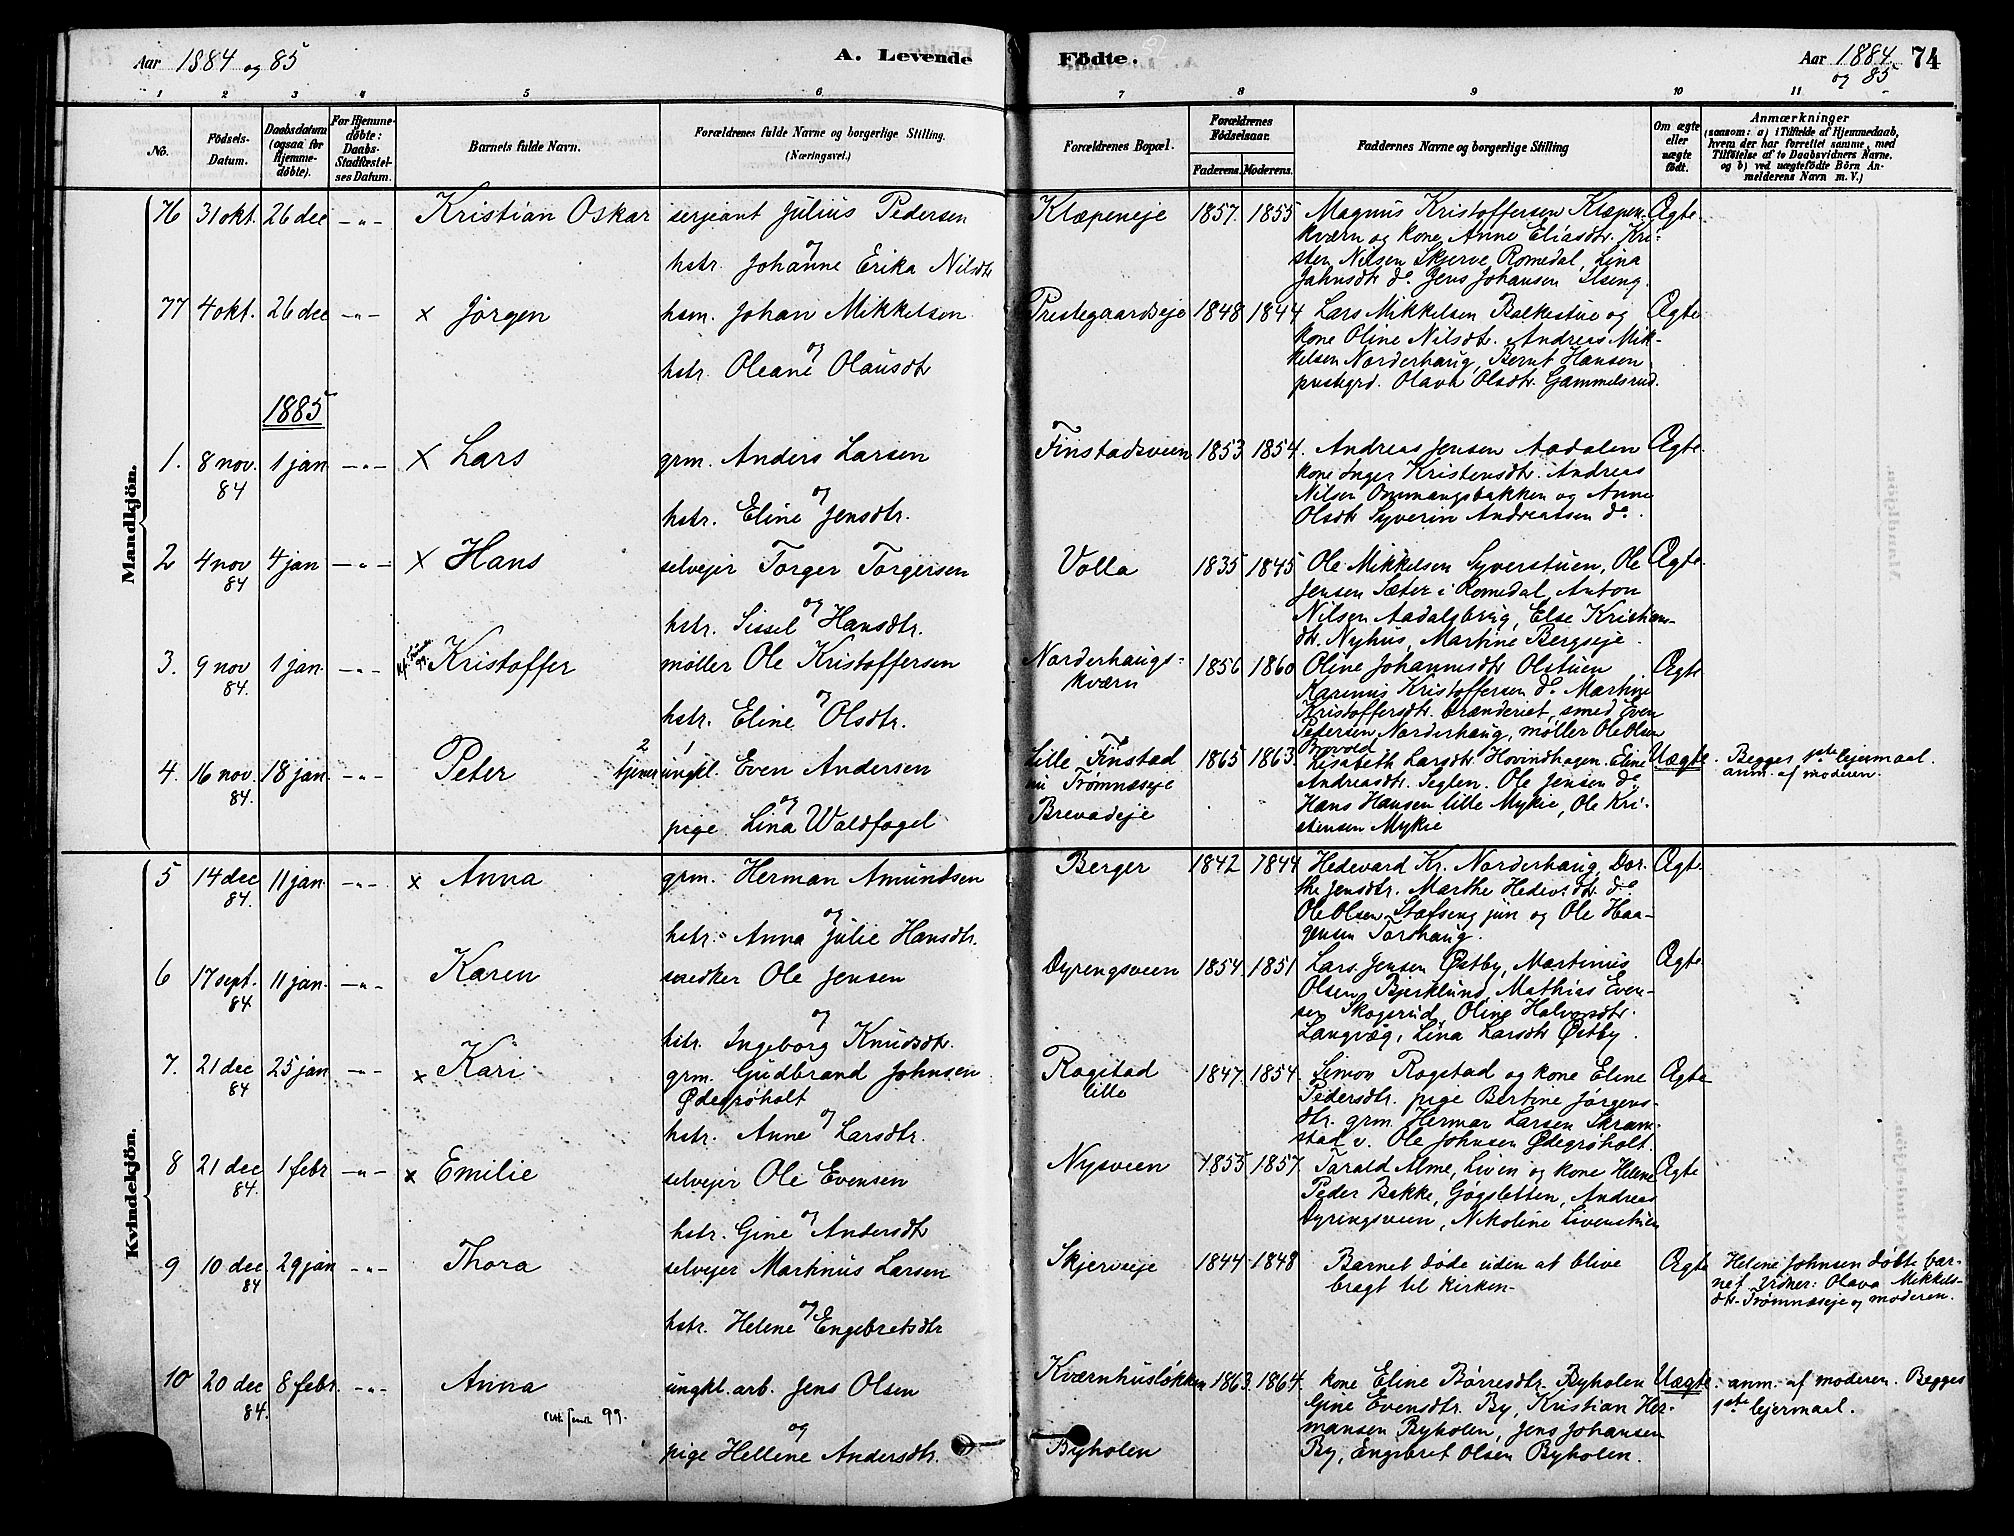 Aar 1884 og 85
A. Levende
Födte.
Aar 1884 og 85
74
1 2 3 4 5 6 7 8 9 10 11
No.
Födsels-Datum.
Daabsdatum (ogsaa for Hjemme-döbte).
For Hjemme-döbte: Daabs-Stadfæstel-ses Datum.
Barnets fulde Navn.
Forældrenes fulde Navne og borgerlige Stilling.
(Næringsvei.)
Forældrenes Bopæl.
Forældrenes Födselsaar.
Faderens. Moderens.
Faddernes Navne og borgerlige Stilling
Om ægte eller uægte födt.
Anmærkninger
(saasom: a) i Tilfælde af Hjemmedaab, hvem der har forrettet samme, med Tilföielse af to Daabsvidners Navne, og b) ved uægtefödte Börn An-melderens Navn m. V.)
Mandkjön.
76 31 okt. 26 dec -"- Kristian Oskar
serjeant Julius Pedersen
og
hstr. Johanne Erika Nilsdtr
Klæpeneje 1857. 1855
Magnus Kristoffersen Klæpen-
kværn og kone Anne Eliasdtr. Kri-
sten Nilsen Skjerve Romedal, Lina
Jahnsdtr do. Jens Johansen Ilseng.
Ægte.
77 4 okt. 26 dec -"- x Jørgen
hsm. Johan Mikkelsen
og
hstr. Oleane Olausdtr
Prestegaardseje 1848 1844
Lars Mikkelsen Balkestue og
kone Oline Nilsdtr. Andreas Mik-
kelsen Norderhaug, Bernt Hansen
prestegrd. Olava Olsdtr. Gammelsrud.
Ægte
1885
1. 8 nov. 84 1 jan -"- x Lars
grm. Anders Larsen
og
hstr. Eline Jensdtr.
Finstadsveen 1853 1854.
Andreas Jensen Aadalen
kone Inger Kristensdtr. Andreas
Nilsen Ommangsbakken og Anne
Olsdtr Syverin Andreassen do.
Ægte.
2 4 nov 84 4 jan -"- x Hans
selvejer Torger Torgersen
og
hstr. Sissel Hansdtr.
Volla 1835 1845
Ole Mikkelsen Syverstuen, Ole
Jensen Sæter i Romedal, Anton
Nilsen Aadalsbrug, Else Kristians-
dtr. Nyhus, Martine Bergseje.
Ægte.
3. 9 nov 84. 1 jan. -"- Kristoffer
møller Ole Kristoffersen
og
hstr. Eline Olsdtr.
Norderhaugs-
kværn
1856 1860
Oline Johannesdtr Olstuen
Karenus Kristoffersen do. Martine
Kristoffersdtr. brænderiet, smed Even
Petersen Norderhaug, møller Ole Olsen
Ægte
4. 16 nov. 84. 18 jan. -"- Peter
2 1
tjener ungkl. Even Andersen
og
pige Lina Waldfogel
Lille Finstad
nu Trømnæseje
Brevadeje
1865 1863.
Lisabeth Larsdtr. Hovindhagen. Eline
Andreasdtr. Seglen. Ole Jensen do
Hans Hansen lille Mykie, Ole Kri-
stensen Mykie
Uægte.
Begges 1ste lejermaal.
anm. af moderen.
Kvindekjön.
5 14 dec 84. 11 jan. -"- x Anna
grm. Herman Amundsen
og
hstr. Anna Julie Hansdtr.
Berger 1842 1844
Hedevard Kr. Norderhaug, Dor-
the Jensdtr. Marthe Hedevsdtr. do
Ole Olsen Stafseng jun og Ole Haa-
gensen Tordhaug.
Ægte.
6 17 sept. 84 11 jan. -"- Karen
snedker Ole Jensen
og
hstr. Ingeborg Knudsdtr.
Dyringsveen 1854. 1851
Lars Jensen Østby, Martinius
Olsen Bjerklund, Mathias Even-
sen Skogsrud, Oline Halvorsdtr.
Langvæg, Lina Larsdtr Østby.
Ægte
7. 21 dec 84 25 jan -"- x Kari
grm. Gudbrand Johnsen
Ødegrøholt
og
hstr. Anne Larsdtr.
Rogstad
lille
1847. 1854.
Simon Rogstad og kone Eline
Pedersdtr. pige Bertine Jørgens-
dtr. grm Herman Larsen Skram-
stad v. Ole Johnsen Ødegrøholt.
Ægte
8 21 dec 84. 1 febr -"- x Emilie
selvejer Ole Evensen
og
hstr. Gine Andersdtr
Nysveen 1855 1857.
Tarald Alme, Liven og kone Helene
Peder Bakke, Gjøgsletten, Andreas
Dyringsveen, Nikoline Livenstuen
Ægte
9 10 dec 84 29 jan -"- Thora
selvejer Martinus Larsen
og
hstr. Helene Engebretsdtr
Skjerveeje 1844 1848
Barnet døde uden at blive
bragt til kirken.
Ægte
Helene Johnsen døbte bar-
net. Vidner: Olava Mikkels-
dtr. Trømnæseje og moderen.
10 20 dec 84. 8 febr. -"- Anna
99.
ungkl. arb. Jens Olsen
og
pige Hellene Andersdtr.
Kværnhusløkken
Byholen
1863. 1864.
kone Eline Børresdtr. Byholen
Gine Evensdtr. By, Kristian Her-
mansen Byholen, Jens Johansen
By, Engebret Olsen Byholen.
Uægte.
anm. af moderen. Begges
1ste lejermaal.